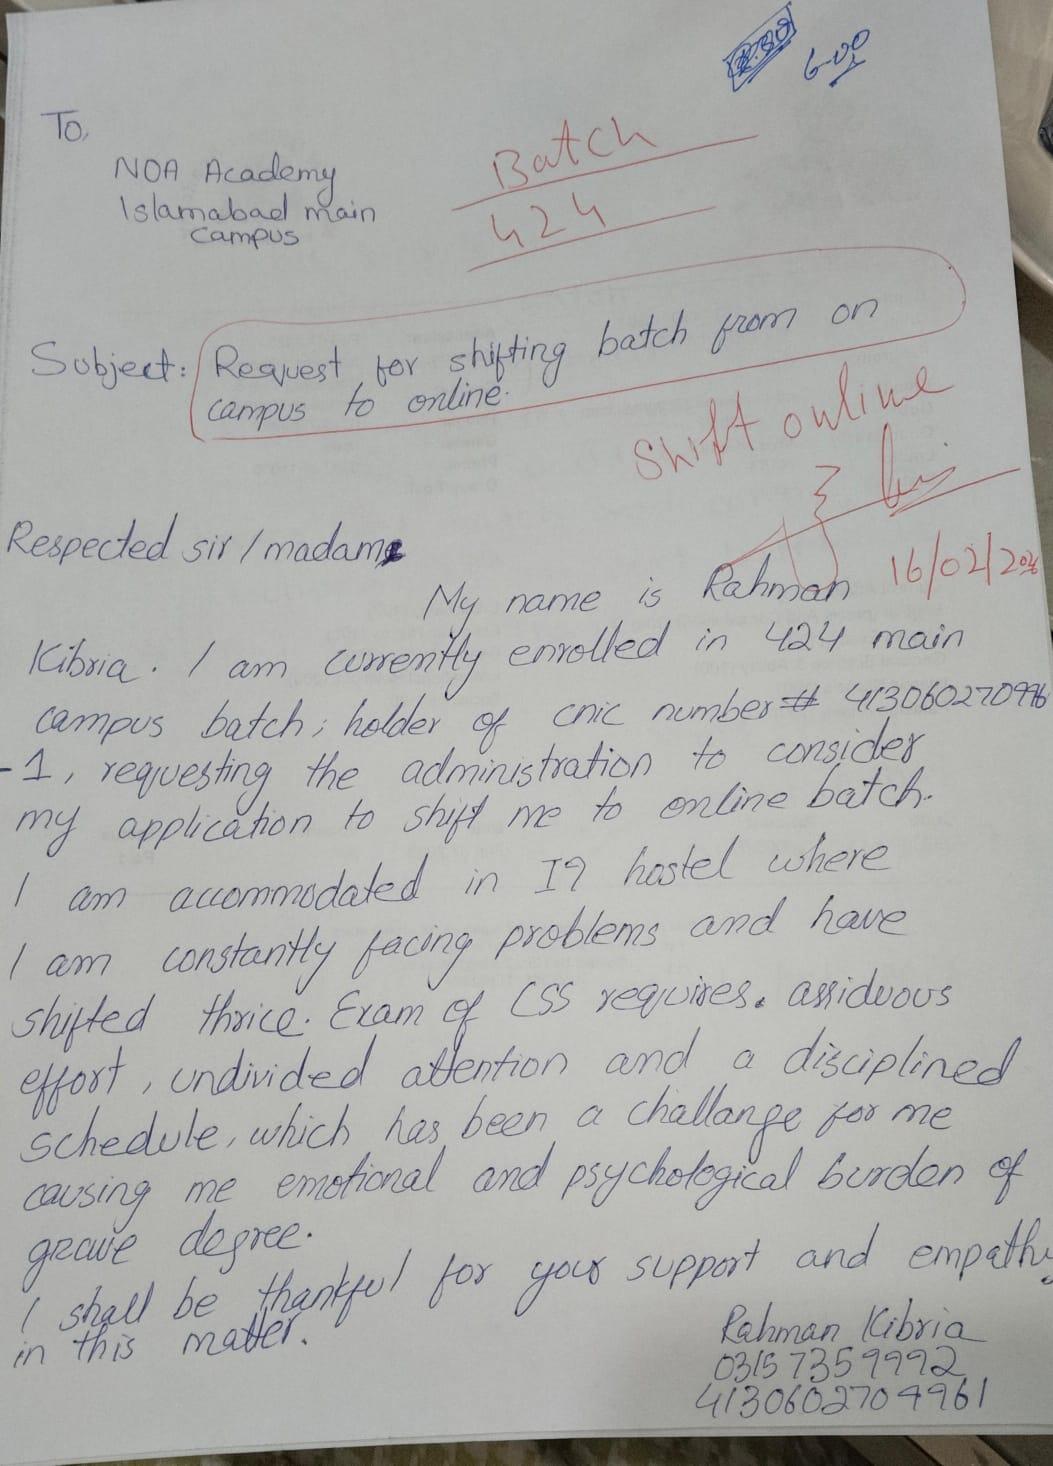 6-00
To,
NOA Academy
Islamabad main
campus
Batch
424
Subject: Request for shifting batch from on
campus to online.
Shift online
16/02/2026
Respected sir/madam,
My name is Rahman
Kibria. I am currently enrolled in 424 main
campus batch; holder of cnic number # 413060270996
-1, requesting the administration to consider
my application to shift me to online batch.
I am accommodated in I9 hostel where
I am constantly facing problems and have
shifted thrice. Exam of CSS requires. assiduous
effort, undivided attention and a disciplined
schedule, which has been a challange for me
causing me emotional and psychological burden of
grave degree.
I shall be thankful for your support and empathy
in this matter.
Rahman Kibria
03157359992
4130602709961